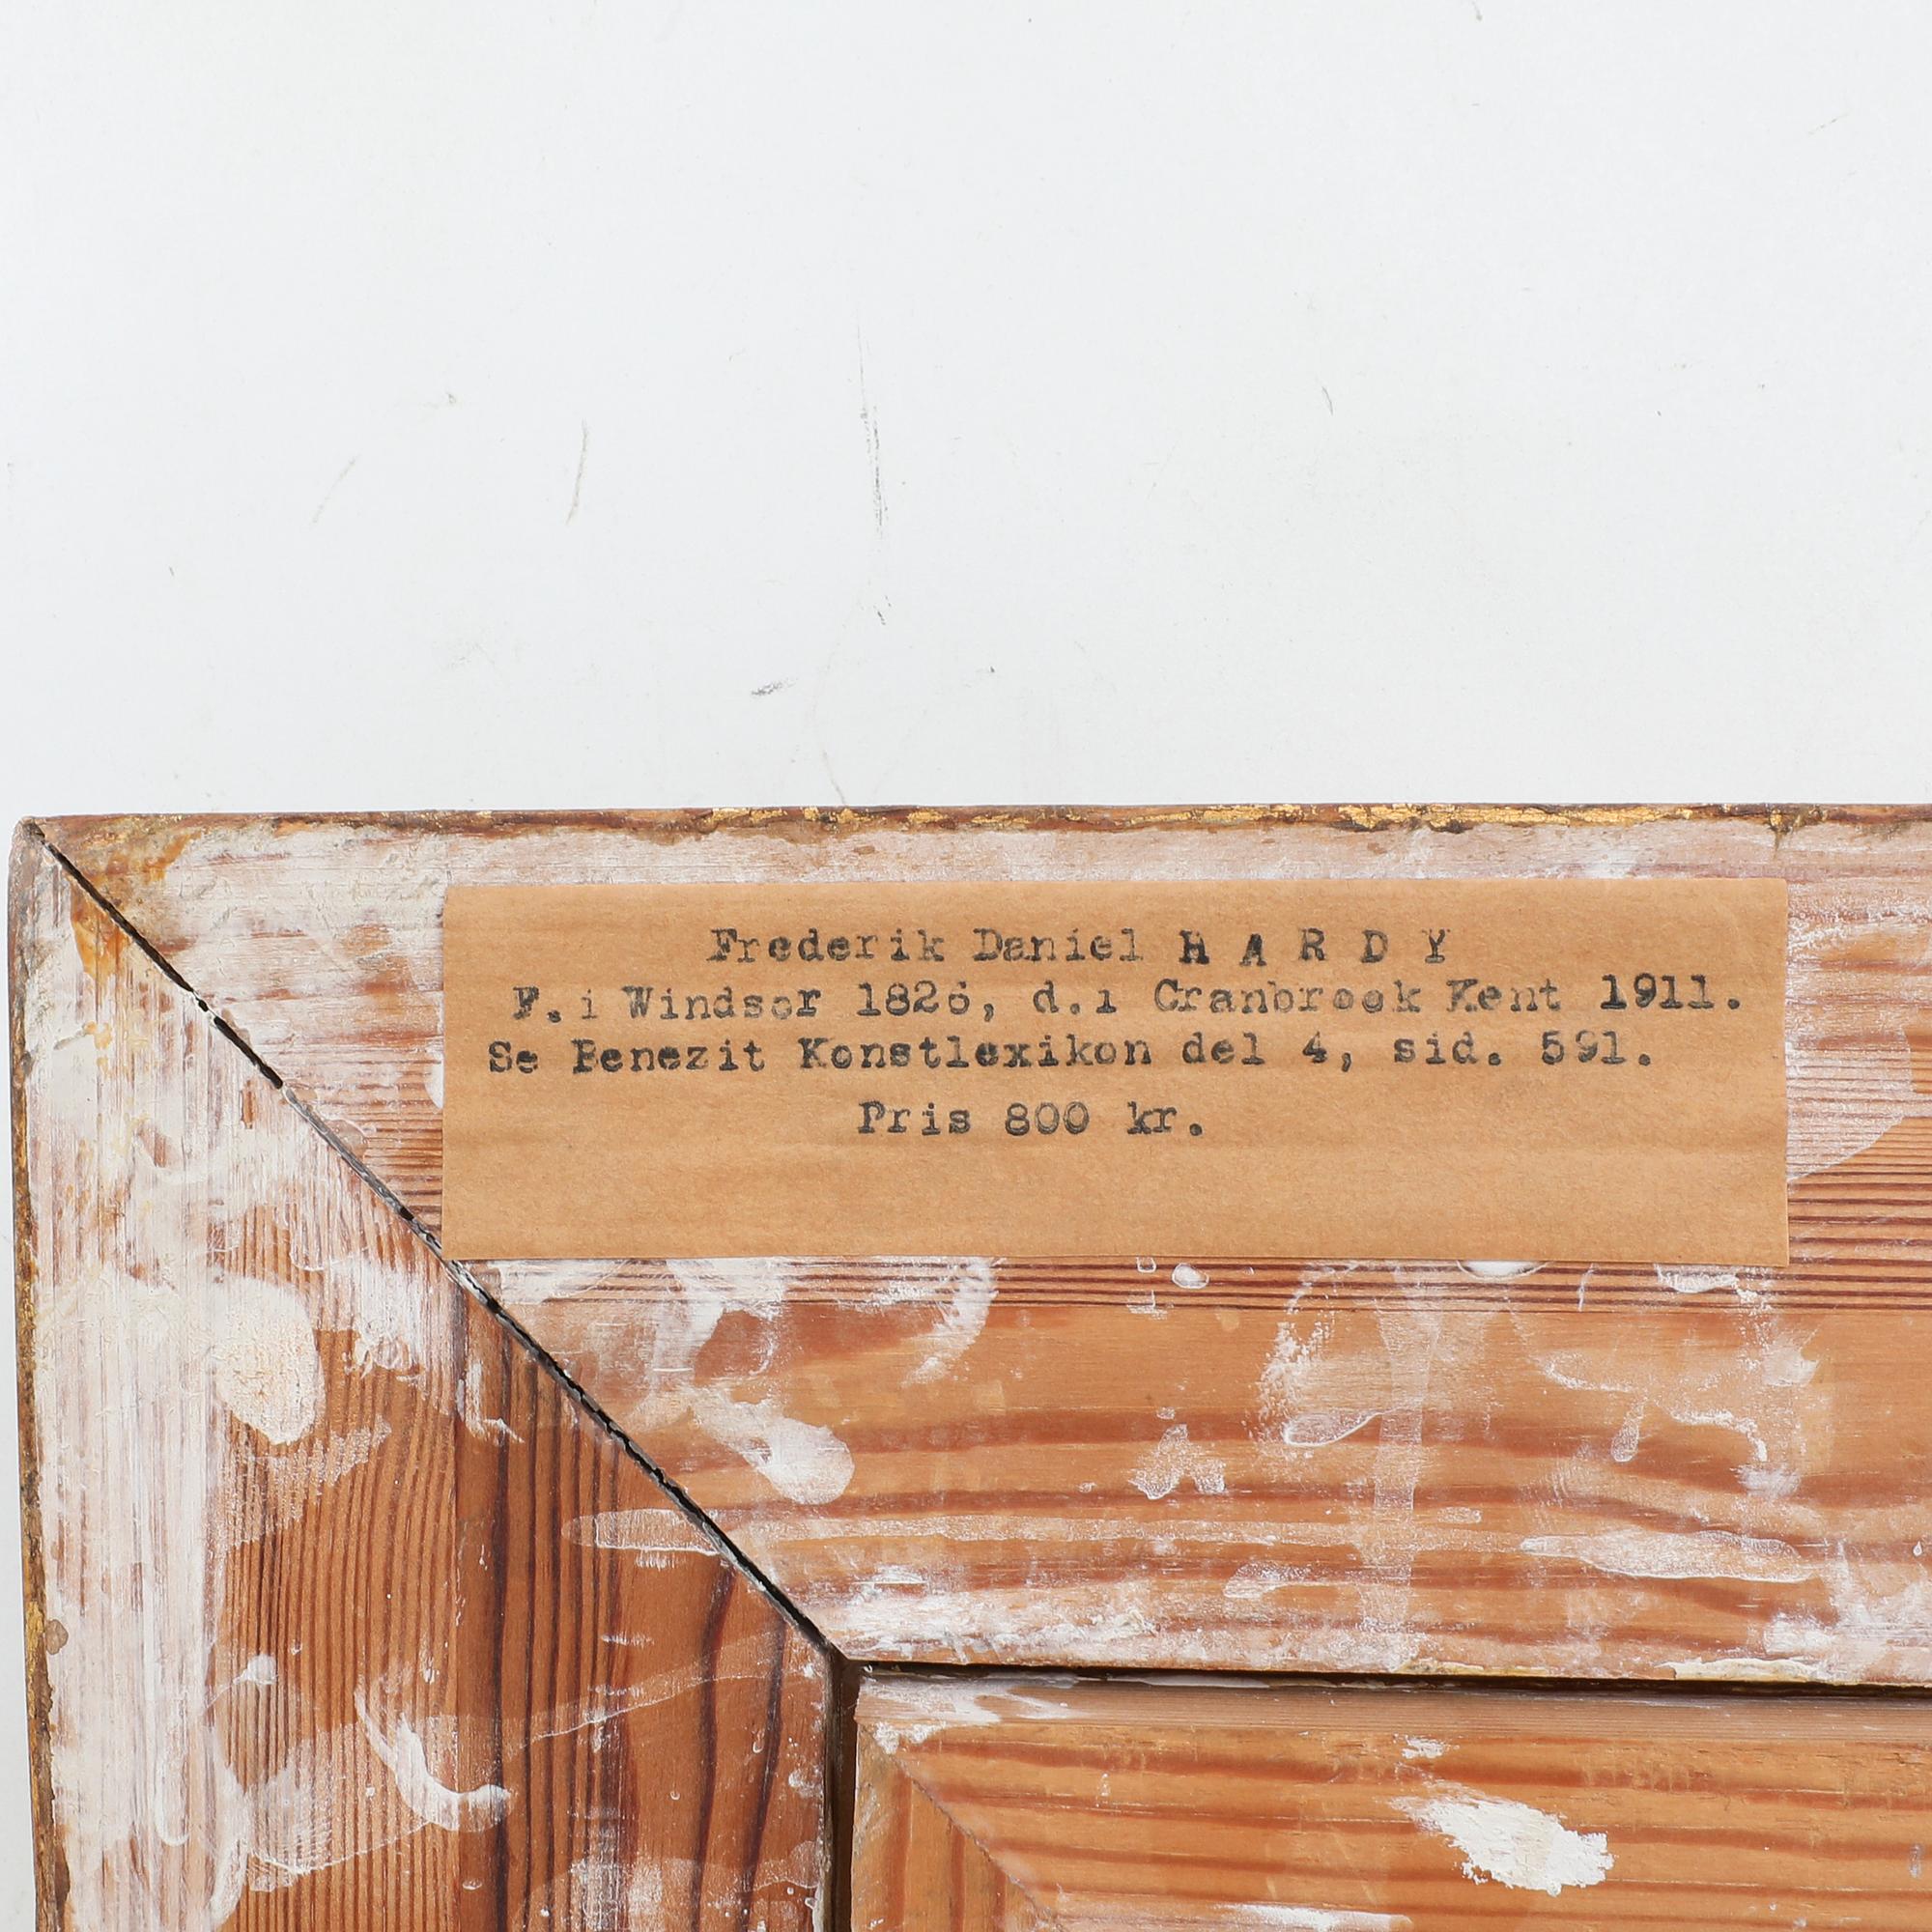 Frederik Daniel H A R D Y
F. i Windsor 1826, d.i Cranbrook Kent 1911.
Se Benezit Konstlexikon del 4, sid. 591.
Pris 800 kr.